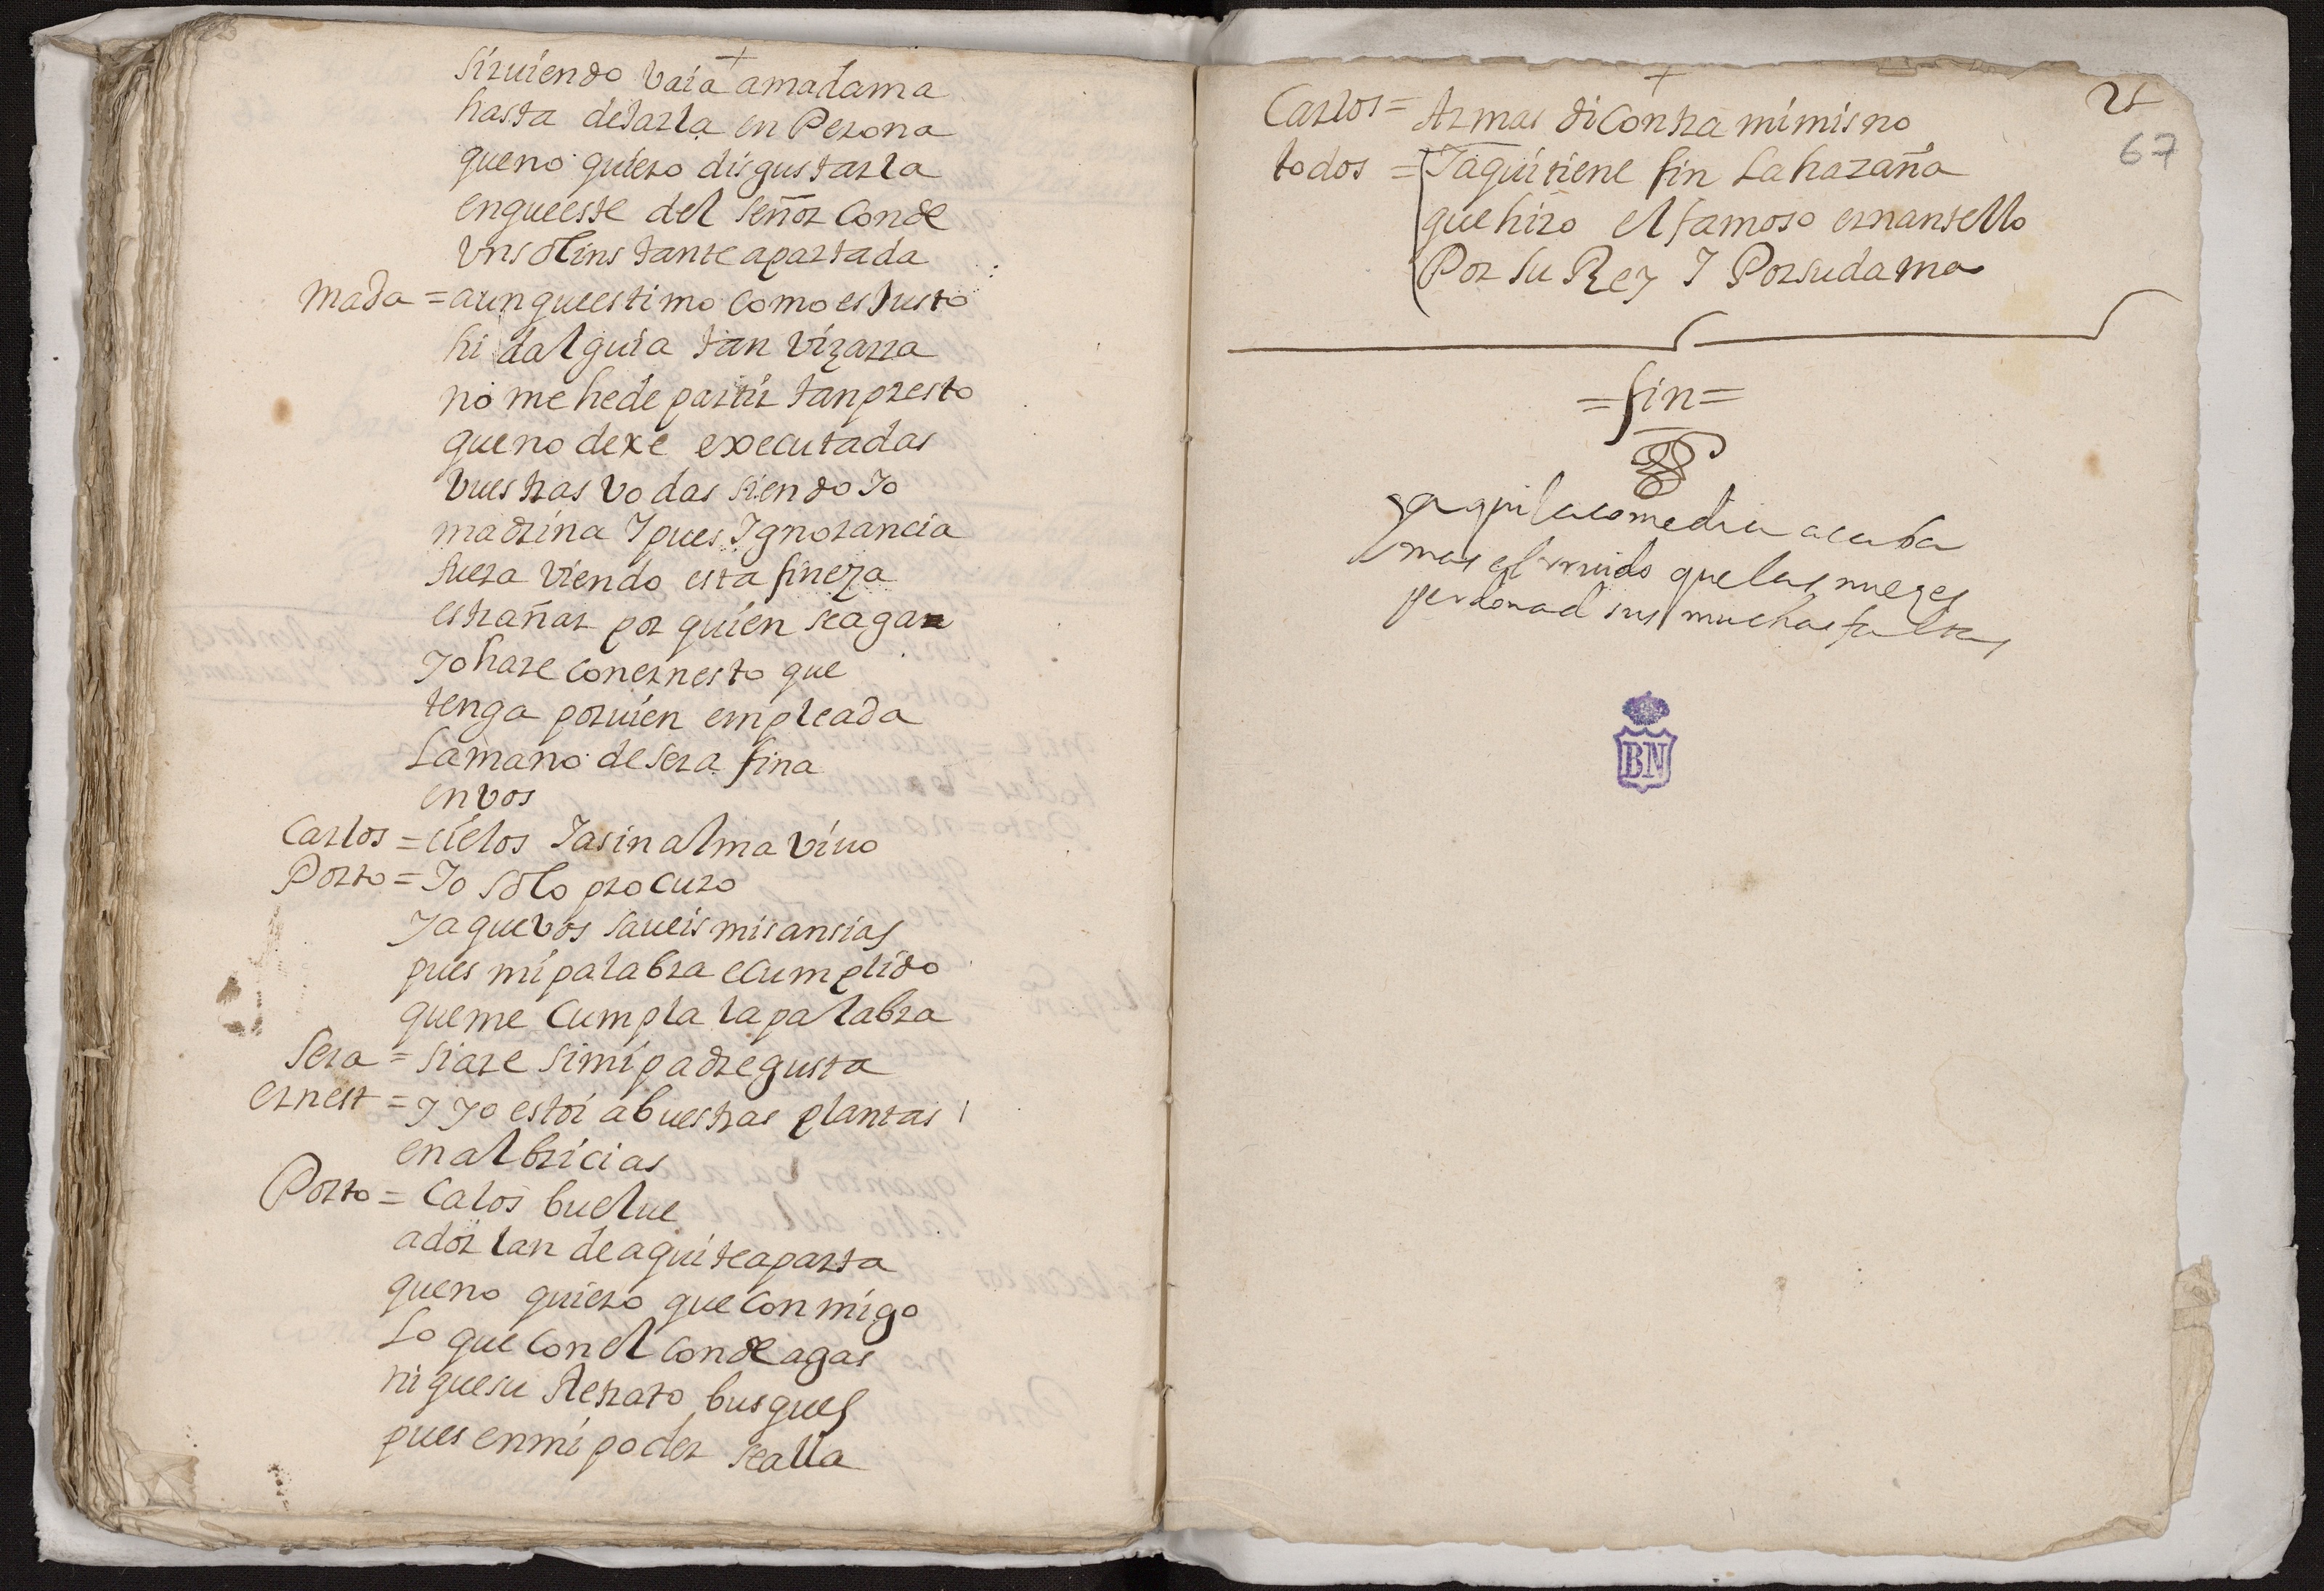 +
siruiendo vaia amadama
hasta dejarla en Perona
queno quiero disgustarla
enqueeste del señor Conde
vnsolins tante apartada
Mada = aunqueestimo como es Justo
hi dalguia tan vizarra
no me hede partir tanpresto
queno dexe executadas
vuestras vo das siendo Io
madrina Y pues Ignorancia
fuera viendo esta fineza
estrañar por quien seagan
Yo hare conernesto que
tenga poruien empleada
La mano desera fina
en vos
Carlos = cielos Ia sin alma viuo
Porto = Io solo procuro
Ya que vos saueis mis ansias
pues mi palabra ecumplido
queme Cumpla lapalabra
Sera = si are simi padre gusta
ernest = Y Yo estoi abuestras plantas
en albricias
Porto = Calos buelue
ador lan deaqui teaparta
queno quiero que conmigo
Lo que con el conde agas
ni quesu Retrato busques
pues enmi poder sealla
+
21
67
Carlos = Armas di Contra mi misno
todos = Iaqui tiene fin La hazaña
que hizo el famoso ernantello
Por su Rey I Por su dama
= fin =
y aqui la comedia acaba
mas el rruido que las nuezes
perdonad sus muchas faltas
BN